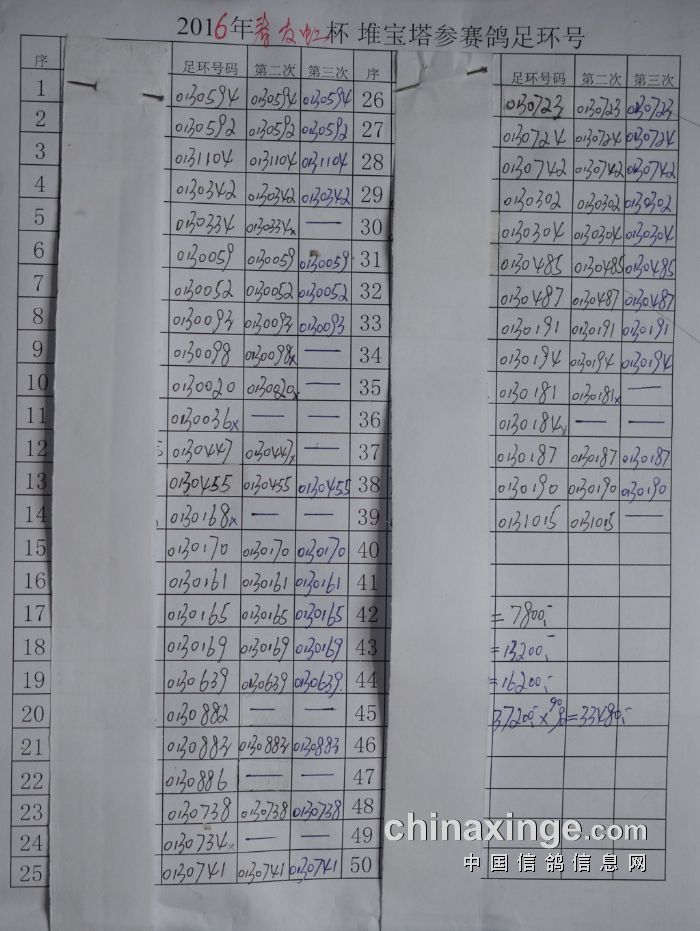 2016年 友 杯 堆宝塔参赛鸽足环号
序 足环号码 第二次 第三次 序 足环号码 第二次 第三次
1 0130594 0130594 0130594 26 0130723 0130723 0130723
2 0130592 0130592 0130592 27 0130724 0130724 0130724
3 0131104 0131104 0131104 28 0130742 0130742 0130742
4 0130342 0130342 0130342 29 0130302 0130302 0130302
5 0130334 0130334x — 30 0130304 0130304 0130304
6 0130059 0130059 0130059 31 0130485 0130485 0130485
7 0130052 0130052 0130052 32 0130487 0130487 0130487
8 0130093 0130093 0130093 33 0130191 0130191 0130191
9 0130098 0130098x — 34 0130194 0130194 0130194
10 0130020 0130020x — 35 0130181 0130181x —
11 0130036x — — 36 0130184x — —
12 0130447 0130447x — 37 0130187 0130187 0130187
13 0130455 0130455 0130455 38 0130190 0130190 0130190
14 0130168x — — 39 0131015 0131015 —
15 0130170 0130170 0130170 40
16 0130161 0130161 0130161 41
17 0130165 0130165 0130165 42 =7800,-
18 0130169 0130169 0130169 43 =13200,-
19 0130639 0130639 0130639 44 =16200,-
20 0130882 — — 45 37200,-×90%=33480,-
21 0130883 0130883 0130883 46
22 0130886 — — 47
23 0130738 0130738 0130738 48
24 0130734x — — 49
25 0130741 0130741 0130741 50
chinaxinge.com
中国信鸽信息网